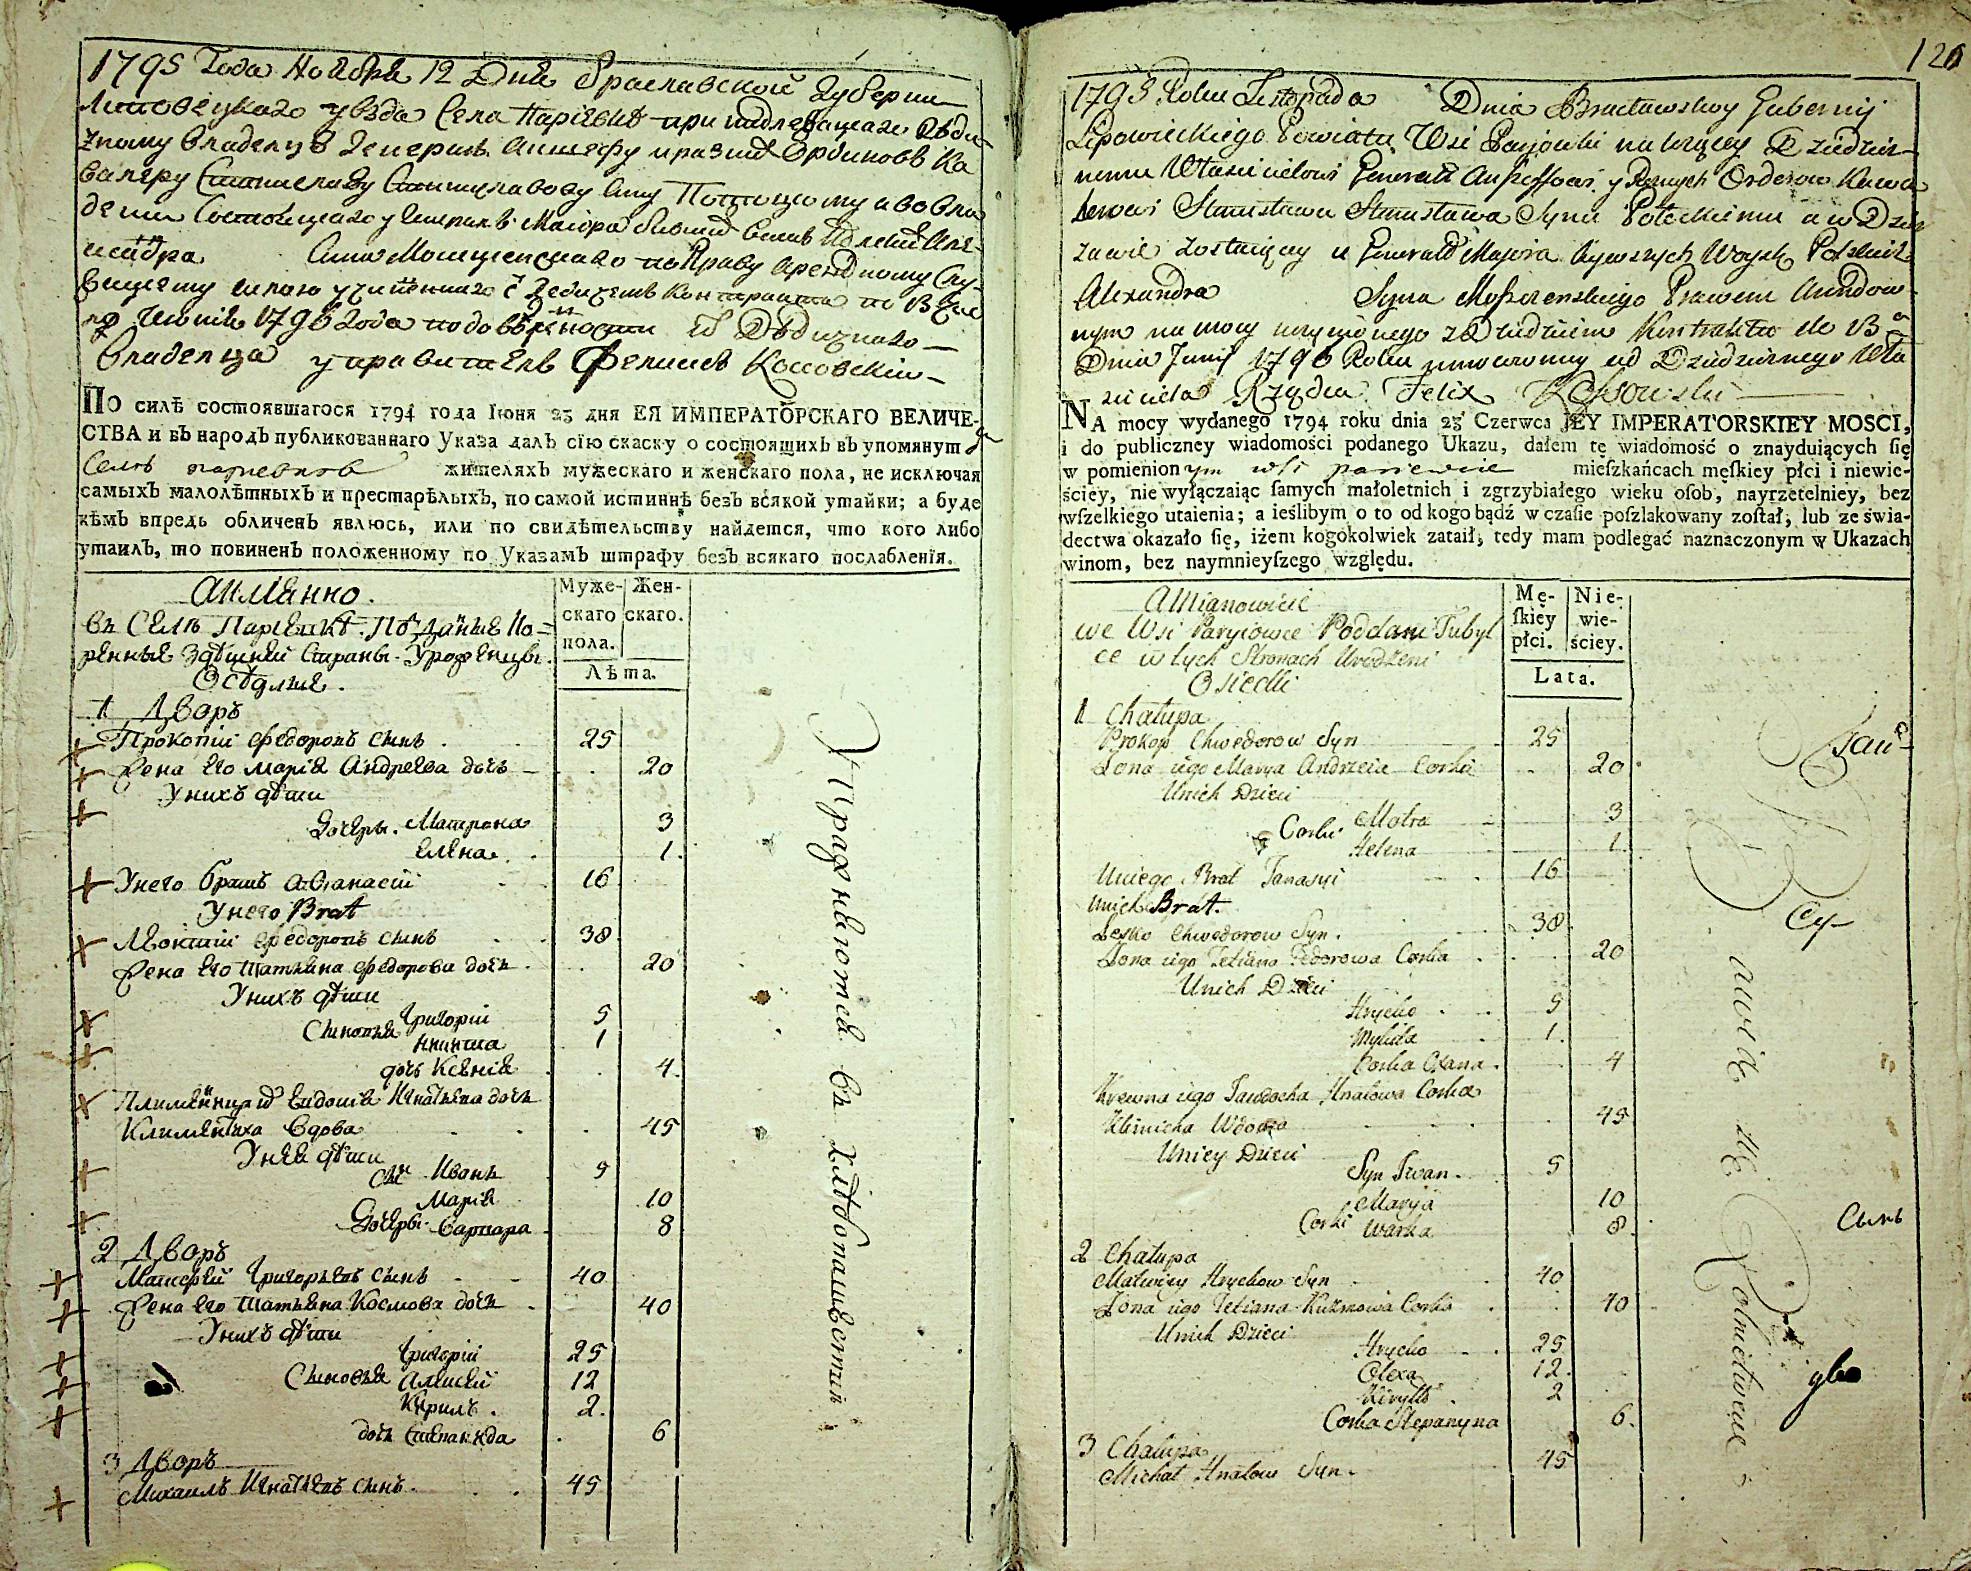 1795 Года Ноября 12 Дня Браславской Губернии
Липовецкаго уезда Села Париевки принадлежащаго Дѣди
чному Владелцу Генералъ Аншефу и разныхъ Ординовъ Ка
валеру Станиславу Станиславову сыну Потоцкому а во вла
дении Состоящаго у Генералъ Маiора бывшихъ войскъ Полскихъ Але
ксандра Сына Мощенскаго по Праву арендному
силою учиненнаго с Дедичемъ Контракта по
Июня 1796 Года по доверенности от Дѣдичнаго
Владелца управитель Феликсъ Коссовскiй
ПО силѣ состоявшагося 1794 года Iюня 23 дня ЕЯ ИМПЕРАТОРСКАГО ВЕЛИЧЕ-
СТВА и въ народъ публикованнаго Указа далъ сïю скаску о состоящихъ въ упомянут
Селѣ париевкѣ жителяхъ мужескаго и женскаго пола, не исключая
самыхъ малолѣтныхъ и престарѣлыхъ, по самой истиннѣ безъ всякой утайки; а буде
кѣмъ впредь обличенъ явлюсь, или по свидѣтельству найдется, что кого либо
утаилъ, то повиненъ положенному по Указамъ штрафу безъ всякаго послабленïя.
Муже- Жен-
скаго скаго.
пола.
Лѣта.
Аимянно.
въ Селѣ Париевкѣ Подданые Ко-
ренные Здѣшней Страны Уроженцы
Оседлые.
1 Дворъ
Прокопiй Федоровъ сынъ 25
Жена его Марiя Андреева дочь 20
У нихъ дѣти
Дочери. Матрона 3
Елена 1.
У него братъ Афанасiй 16
У него Brat
Леонтiй Федоровъ сынъ 38
Жена его Татьяна Федорова дочь 20
У нихъ дѣти
Григорiй 5
Сыновья Никита 1
дочь Ксенiя 4.
Племянница их Евдокiя Игнатьева дочь
Климентиха Вдова 45
У нея дѣти
сынъ Иванъ 5
Марiя 10
Дочери Варвара 8
2 Дворъ
Матфей Григорьевъ сынъ 40
Жена его Татьяна Космова дочь 40
У нихъ дѣти
Григорiй 25
Сыновья Алексей 12
Кирилъ. 2.
дочь Степанида 6
3 Дворъ
Михаилъ Игнатьевъ сынъ 45
Упражняются въ хлѣбопашествѣ
126
1795 Roku Listopada Dnia Bracławskey Gubernij
Lipowieckiego Powiatu Wsi Paryiowki należącey Dziedzicz-
nemu Właścicielowi Generałł Anszeffowi y Roznych Orderow Kawa
lerowi Stanisławu Stanisława Synu Potockiemu a w Dzier
zawie zostaiącey u Generałł Majora bywszych Woysk Polskich
Alexandra Syna Moszczenskiego Prawem Arendow-
nym na mocy uczynionego z Dziedzicem Kontraktu do 13
Dnia Junij 1796 Roku umocowany od Dziedzicznego Wła
sciciela Rządca Felix Kossowski
NA mocy wydanego 1794 roku dnia 23 Czerwca JEY IMPERATORSKIEY MOSCI,
i do publiczney wiadomości podanego Ukazu, dałem tę wiadomość o znayduiących się
w pomienionym wsi pariewce mieſzkańcach męſkiey płci i niewie-
ściey, nie wyłączaiąc ſamych małoletnich i zgrzybiałego wieku oſob, nayrzetelniey, bez
wſzelkiego utaienia; a ieślibym o to od kogo bądź w czaſie poſzlakowany zoſtał, lub ze świa-
dectwa okazało się, iżem kogokolwiek zataił, tedy mam podlegać naznaczonym w Ukazach
winom, bez naymnieyſzego względu.
Mę- Nie-
ſkiey wie-
płci. ściey.
Lata.
A Mianowicie
we Wsi Paryiowce Poddani Tubyl
ce w tych Stronach Urodzeni
Osiedli
1 Chałupa
Prokop Chwedorow Syn 25
Żona iego Marya Andrzeia Corka 20
U nich Dzieci
Corki Motra 3
Helena 1.
U niego Brat Panasyi 16
U nich Brat.
Lesko Chwedorow Syn. 38
Żona iego Tetiana Fedorowa Corka 20
U nich Dzieci
Hryćko 5
Mykita 1.
Corka Oxana. 4
Krewna iego Jawdocha Hnatowa Corka
Klimicha Wdowa 45
U niey Dzieci
Syn Iwan. 5
Marya 10
Corki Warka 8.
2 Chałupa
Matwiey Hryćkow Syn 40
Żona iego Tetiana Kuźmowa Corka 40
U nich Dzieci
Hryćko 25
Olexa 12.
Kiryłło. 2
Corka Stepanyna 6.
3 Chałupa
Michał Hnatow Syn. 45
Bawią się Rolnictwem
Сынъ